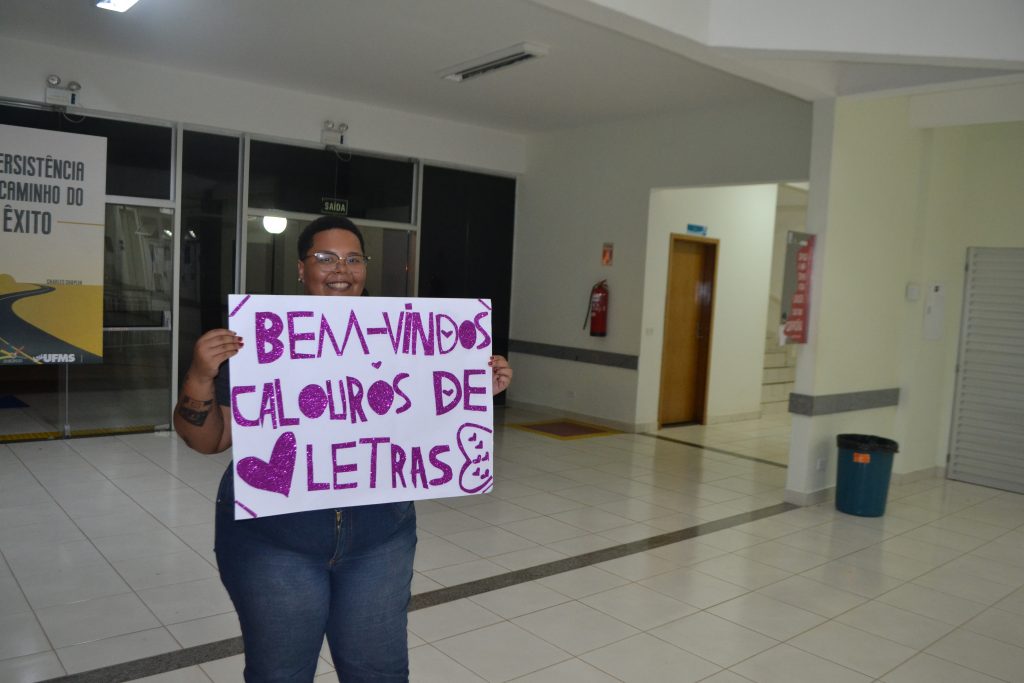 ERSISTÊNCIA
CAMINHO DO
ÊXITO
CHARLES CHAPLIN
UFMS
SAÍDA
BEM-VINDOS
CALOUROS DE
LETRAS